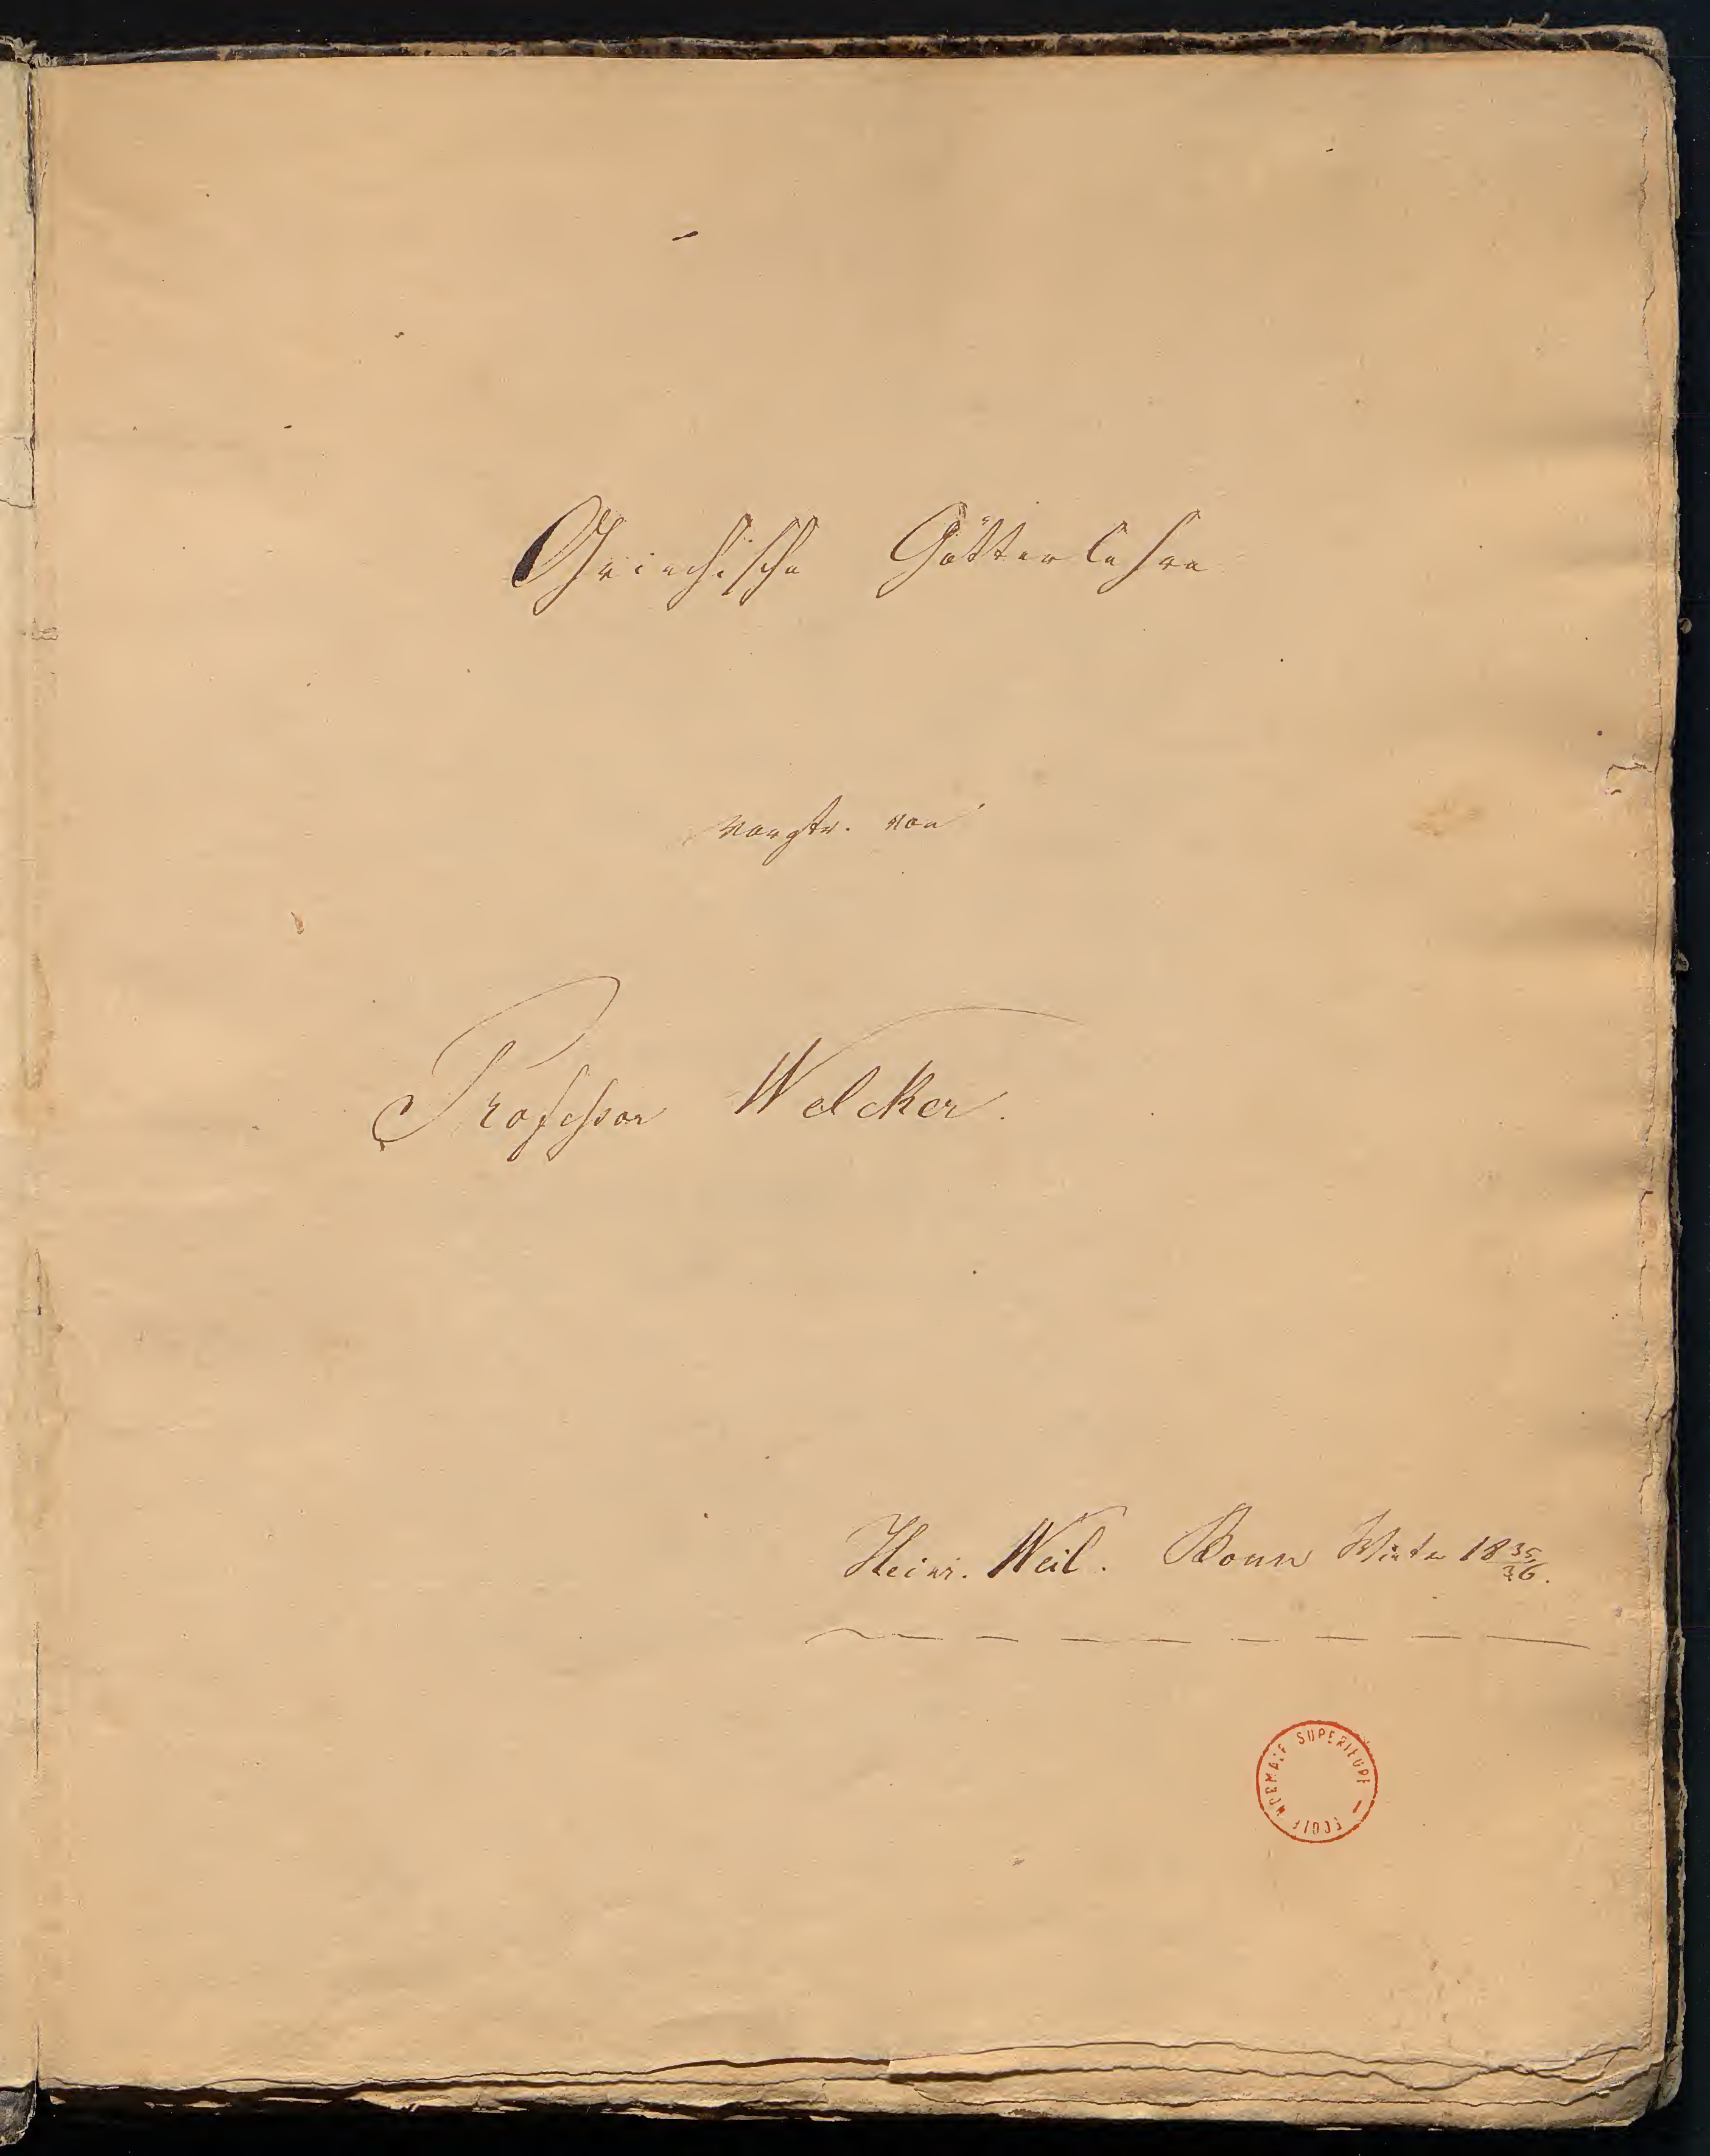 Griechische Götterlehre
vorgetr. von
Professor Welcker.
Heinr. Weil. Bonn Winter 18 35/36.
ECOLE NORMALE SUPERIEURE —